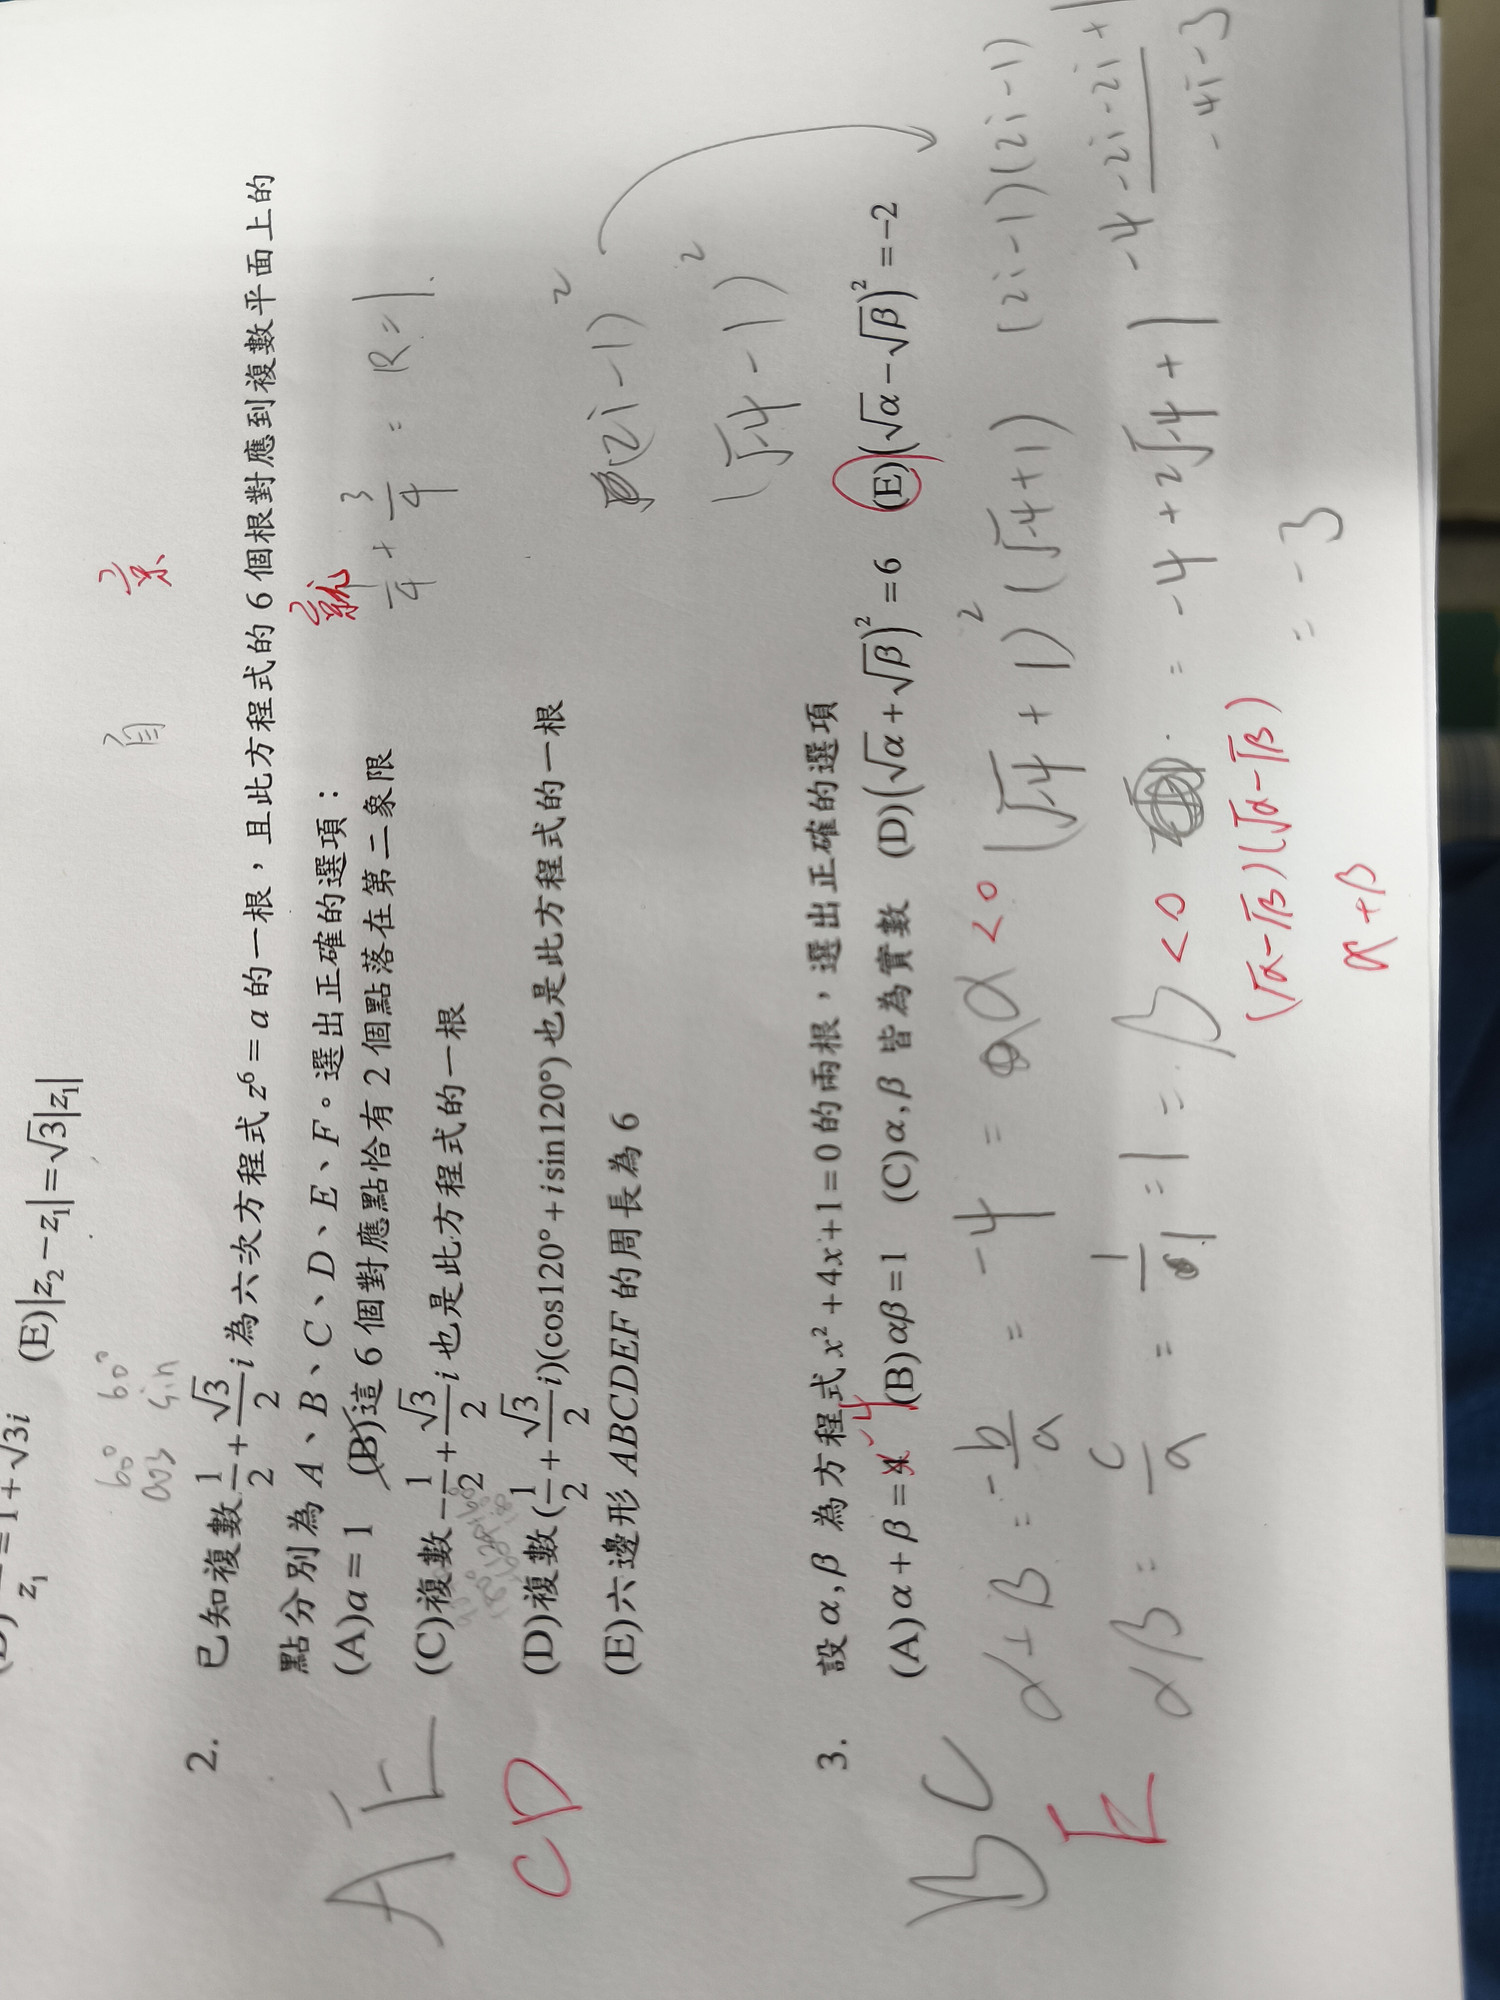 z₁ = 1+√3i (E)|z₂−z₁|=√3|z₁|
60° 60°
cos sin
2. 已知複數 1/2+√3/2 i 為六次方程式 z⁶=a 的一根，且此方程式的 6 個根對應到複數平面上的
點分別為 A、B、C、D、E、F。選出正確的選項：
(A)a=1 (B)這 6 個對應點恰有 2 個點落在第二象限
(C)複數 −1/2+√3/2 i 也是此方程式的一根
(D)複數(1/2+√3/2 i)(cos120°+isin120°)也是此方程式的一根
(E)六邊形 ABCDEF 的周長為 6
AE
CD
1/4 + 3/4 = R=1
(2i-1)²
(√-4 -1)²
3. 設 α,β 為方程式 x²+4x+1=0 的兩根，選出正確的選項
(A)α+β=4 -4 (B)αβ=1 (C)α,β 皆為實數 (D)(√α+√β)²=6 (E)(√α−√β)²=−2
BC
E
α+β = -b/a = -4 = α <0 (√-4 +1)² (√-4+1) (2i-1)(2i-1)
αβ = c/a = 1/1 = 1 = β <0 = -4+2√-4+1 -4-2i-2i+1
-4i-3
= -3
(√α-√β)(√α-√β)
α+β